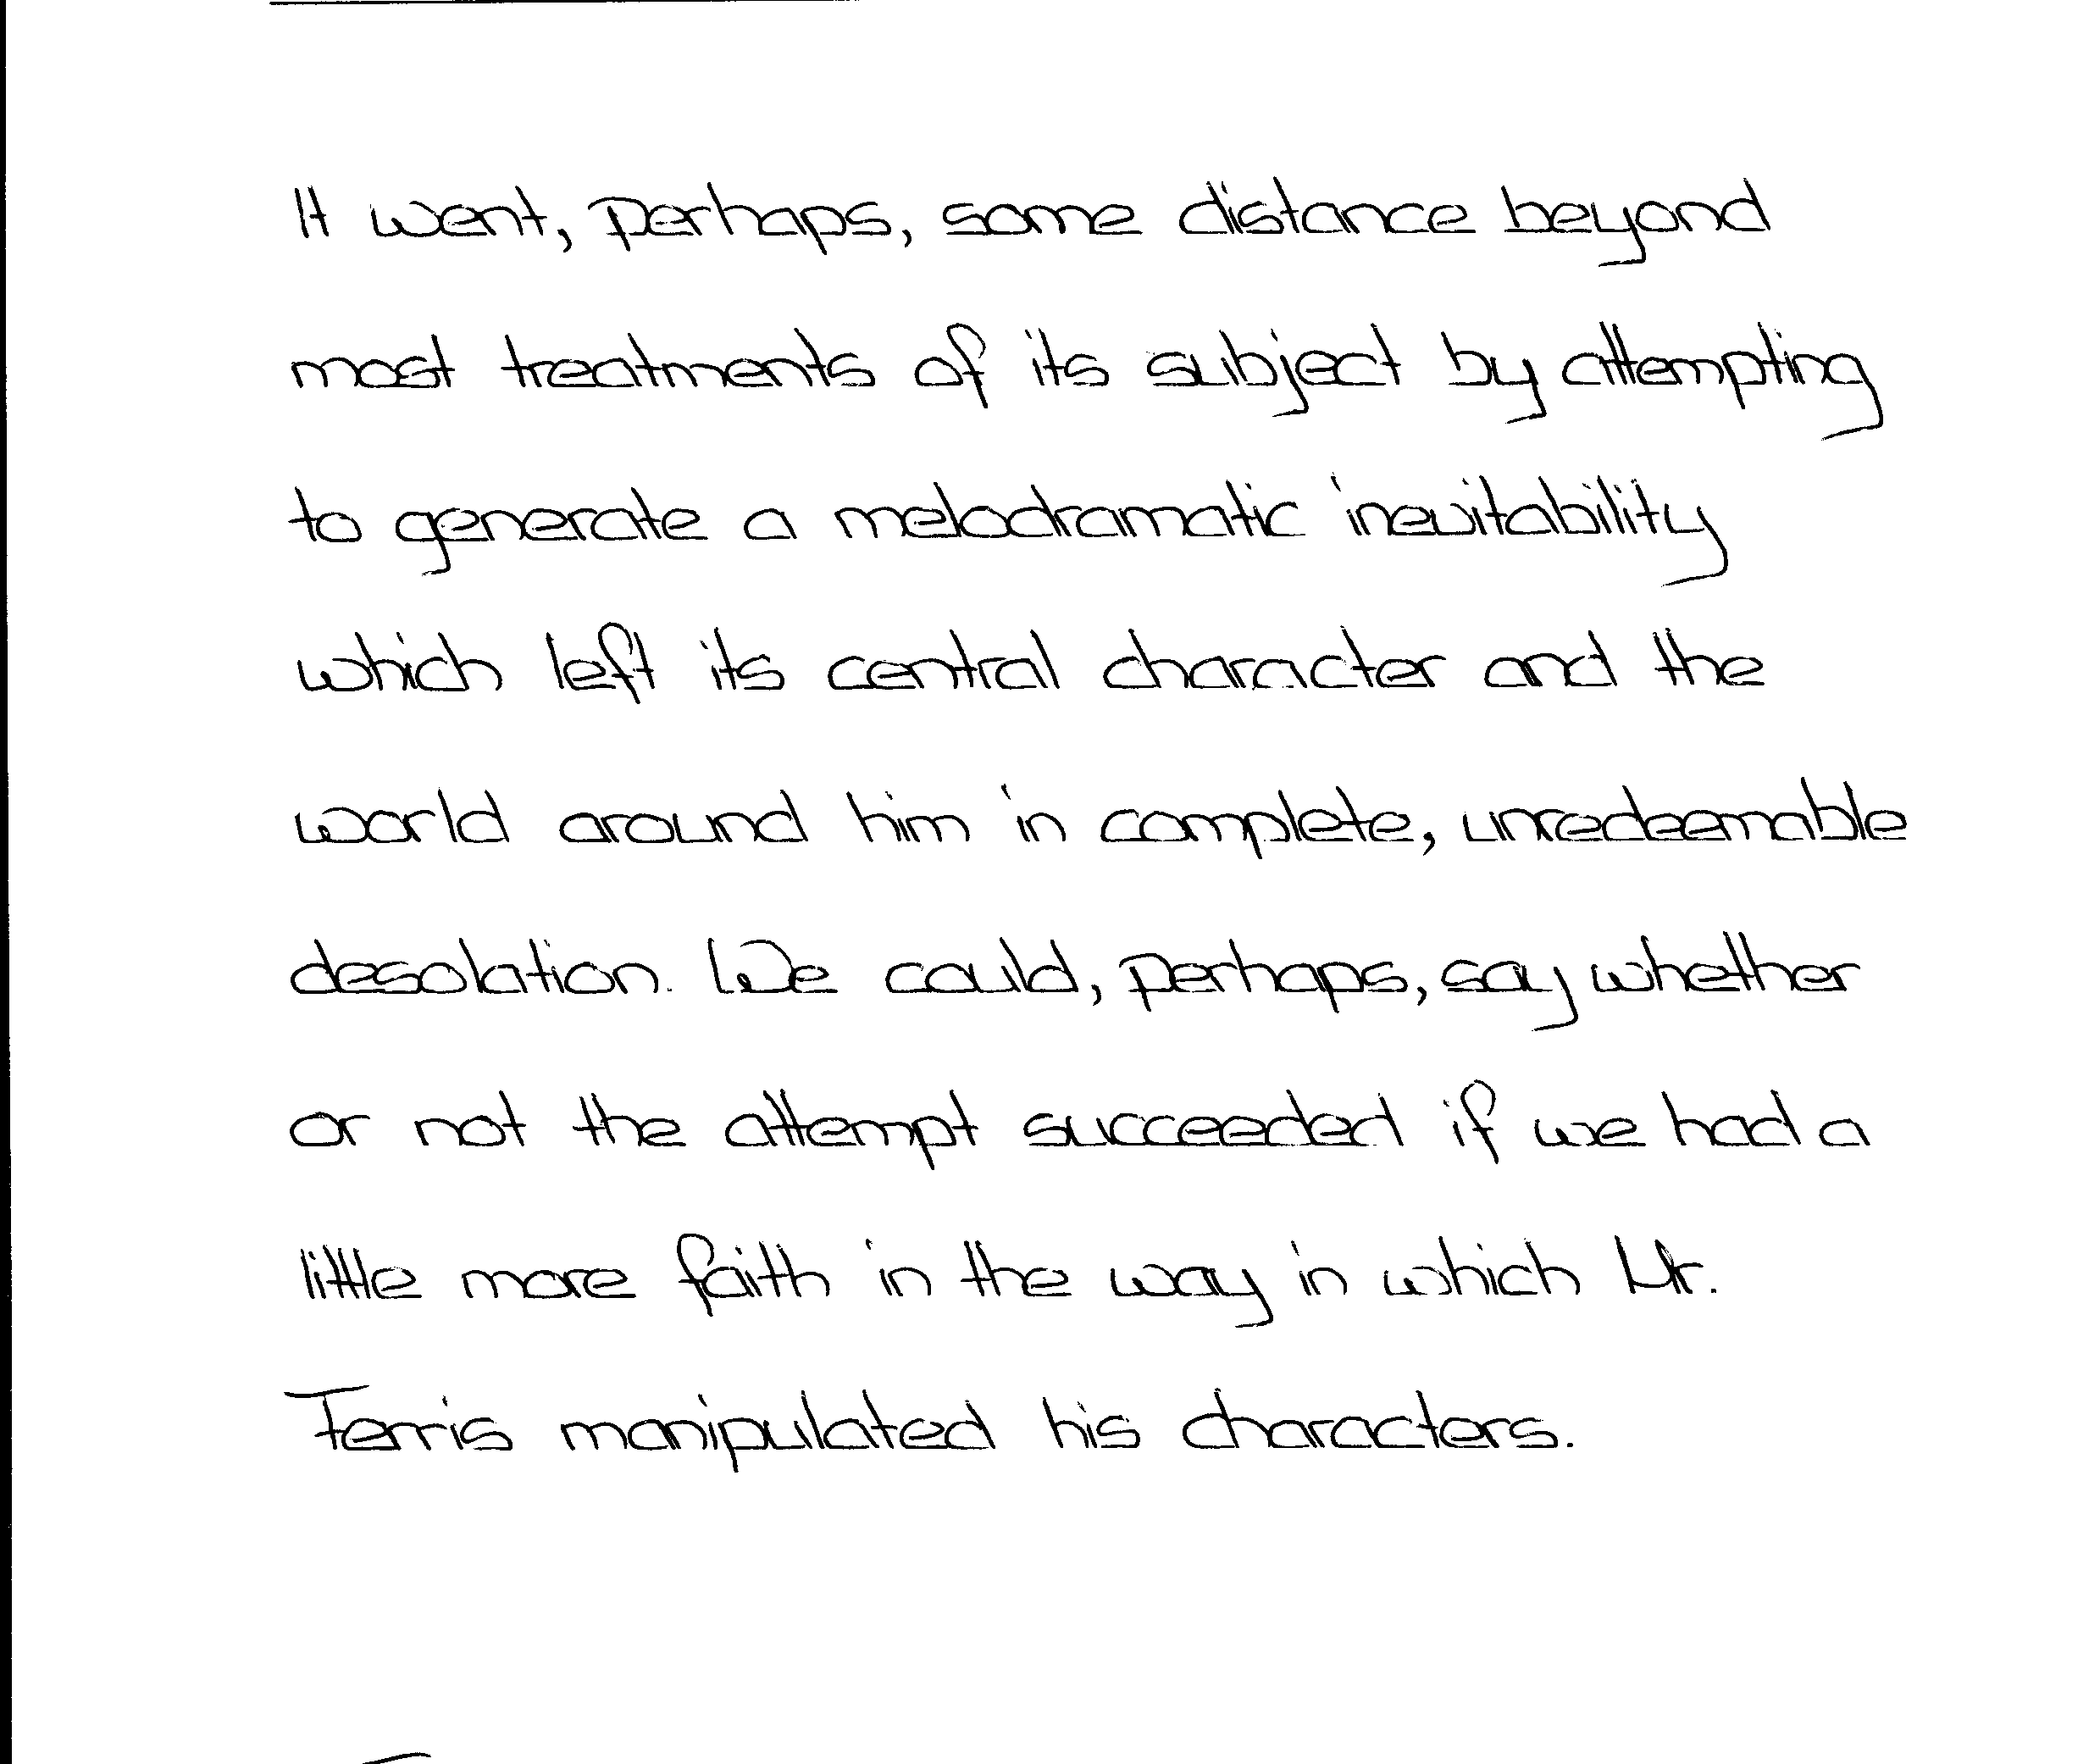 It went, perhaps, some distance beyond
most treatments of its subject by attempting
to generate a melodramatic inevitability
which left its central character and the
world around him in complete, unredeemable
desolation. We could, perhaps, say whether
or not the attempt succeeded if we had a
little more faith in the way in which Mr.
Ferris manipulated his characters.